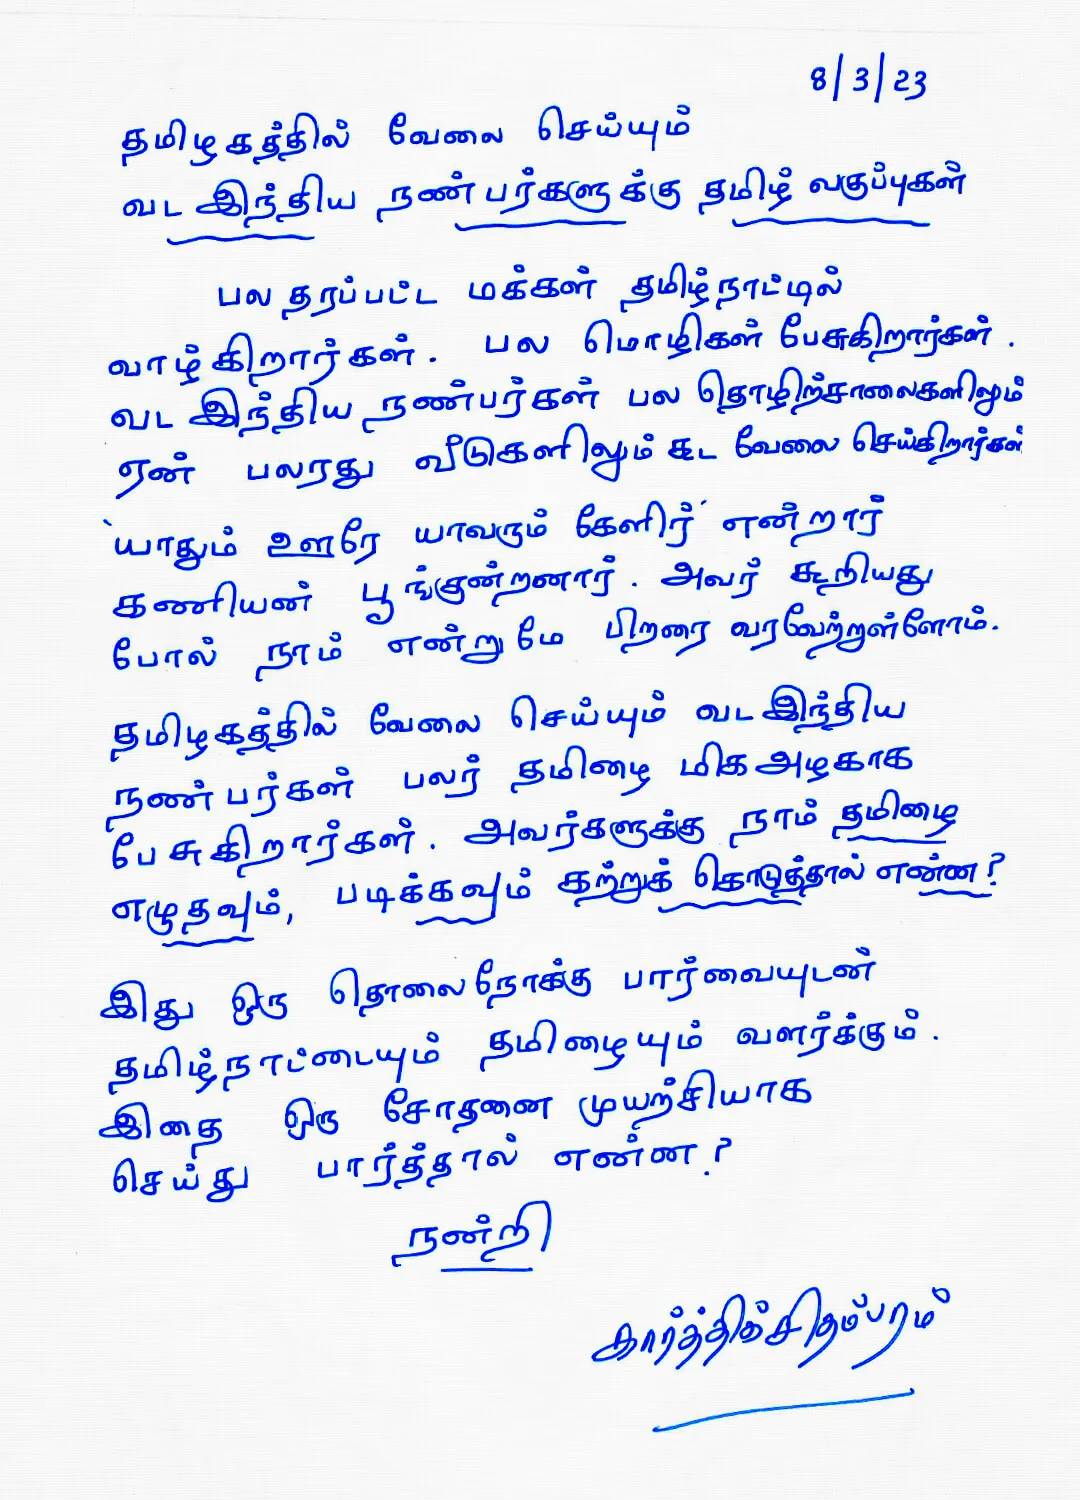 8/3/23
தமிழகத்தில் வேலை செய்யும்
வட இந்திய நண்பர்களுக்கு தமிழ் வகுப்புகள்
பல தரப்பட்ட மக்கள் தமிழ்நாட்டில்
வாழ்கிறார்கள். பல மொழிகள் பேசுகிறார்கள்.
வட இந்திய நண்பர்கள் பல தொழிற்சாலைகளிலும்
ஏன் பலரது வீடுகளிலும் கூட வேலை செய்கிறார்கள்
`யாதும் ஊரே யாவரும் கேளிர்´ என்றார்
கணியன் பூங்குன்றனார். அவர் கூறியது
போல் நாம் என்றுமே பிறரை வரவேற்றுள்ளோம்.
தமிழகத்தில் வேலை செய்யும் வட இந்திய
நண்பர்கள் பலர் தமிழை மிக அழகாக
பேசுகிறார்கள். அவர்களுக்கு நாம் தமிழை
எழுதவும், படிக்கவும் கற்றுக் கொடுத்தால் என்ன?
இது ஒரு தொலைநோக்கு பார்வையுடன்
தமிழ்நாட்டையும் தமிழையும் வளர்க்கும்.
இதை ஒரு சோதனை முயற்சியாக
செய்து பார்த்தால் என்ன?
நன்றி
கார்த்திக்சிதம்பரம்